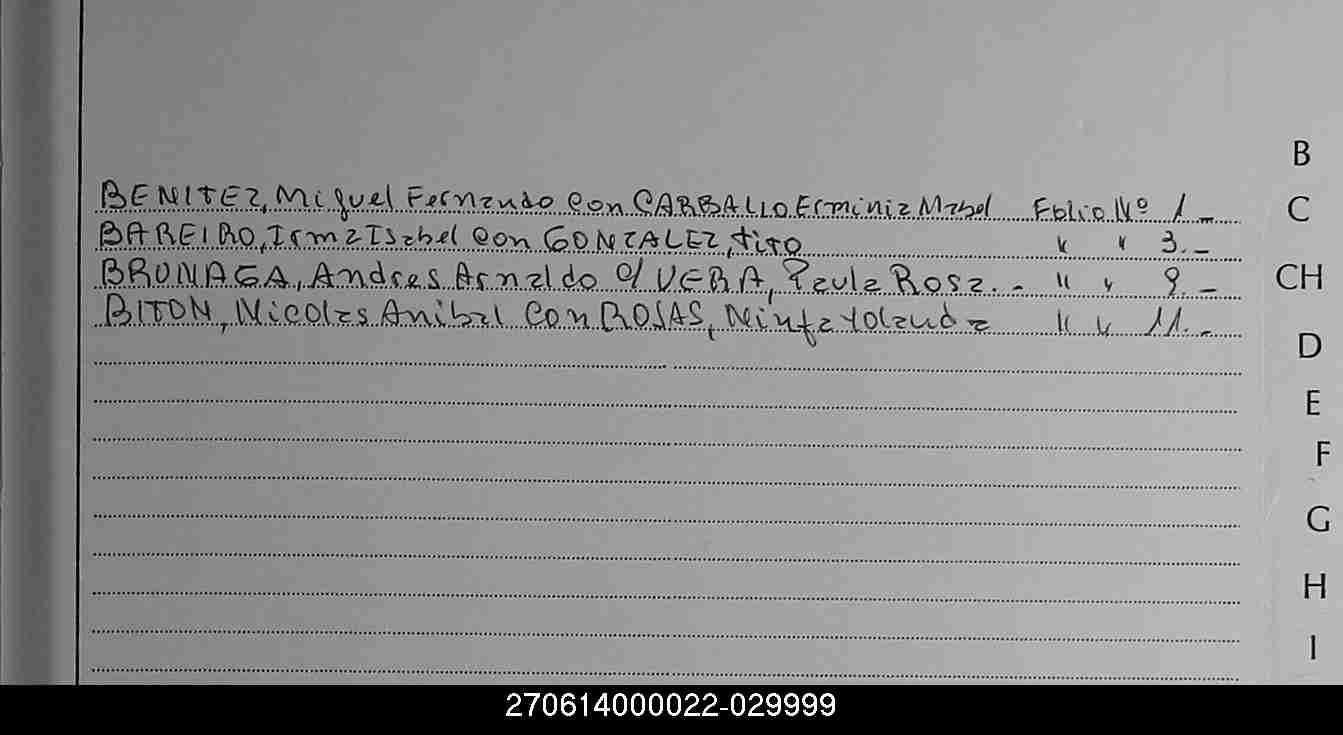 BENITEZ, Miguel Fernando con CARBALLO Erminia Mabel Folio Nº 1.-
BAREIRO, Irma Isabel con GONZALEZ, tito " " 3.-
BRUNAGA, Andres Arnaldo c/ VERA, Paula Rosa.- " " 9.-
BITON, Nicolas Anibal con ROJAS, Ninfa Yolanda " " 11.-
B
C
CH
D
E
F
G
H
I
270614000022-029999